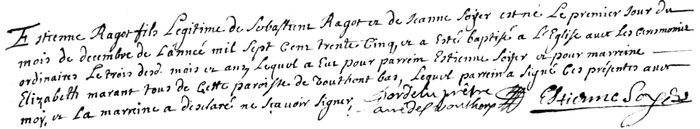 Estienne Ragot fils Legitime de Sebastient Ragot et de Jeanne Soyer est né Le premier Jour du
mois de decembre de L'année mil sept Cent trente Cinq, et a Esté baptisé a L'Eglise avec Les Ceremonies
ordinaires Le trois desd. mois et an, Lequel a Eue pour parrein Estienne Soyer et pour marrine
Elizabeth marant tous de Cette paroisse de Vouthont bas, Lequel parrein a signé Ces présentes avec
moy, et La marrine a déclaré ne sçavoir signer,
Estienne Soyer